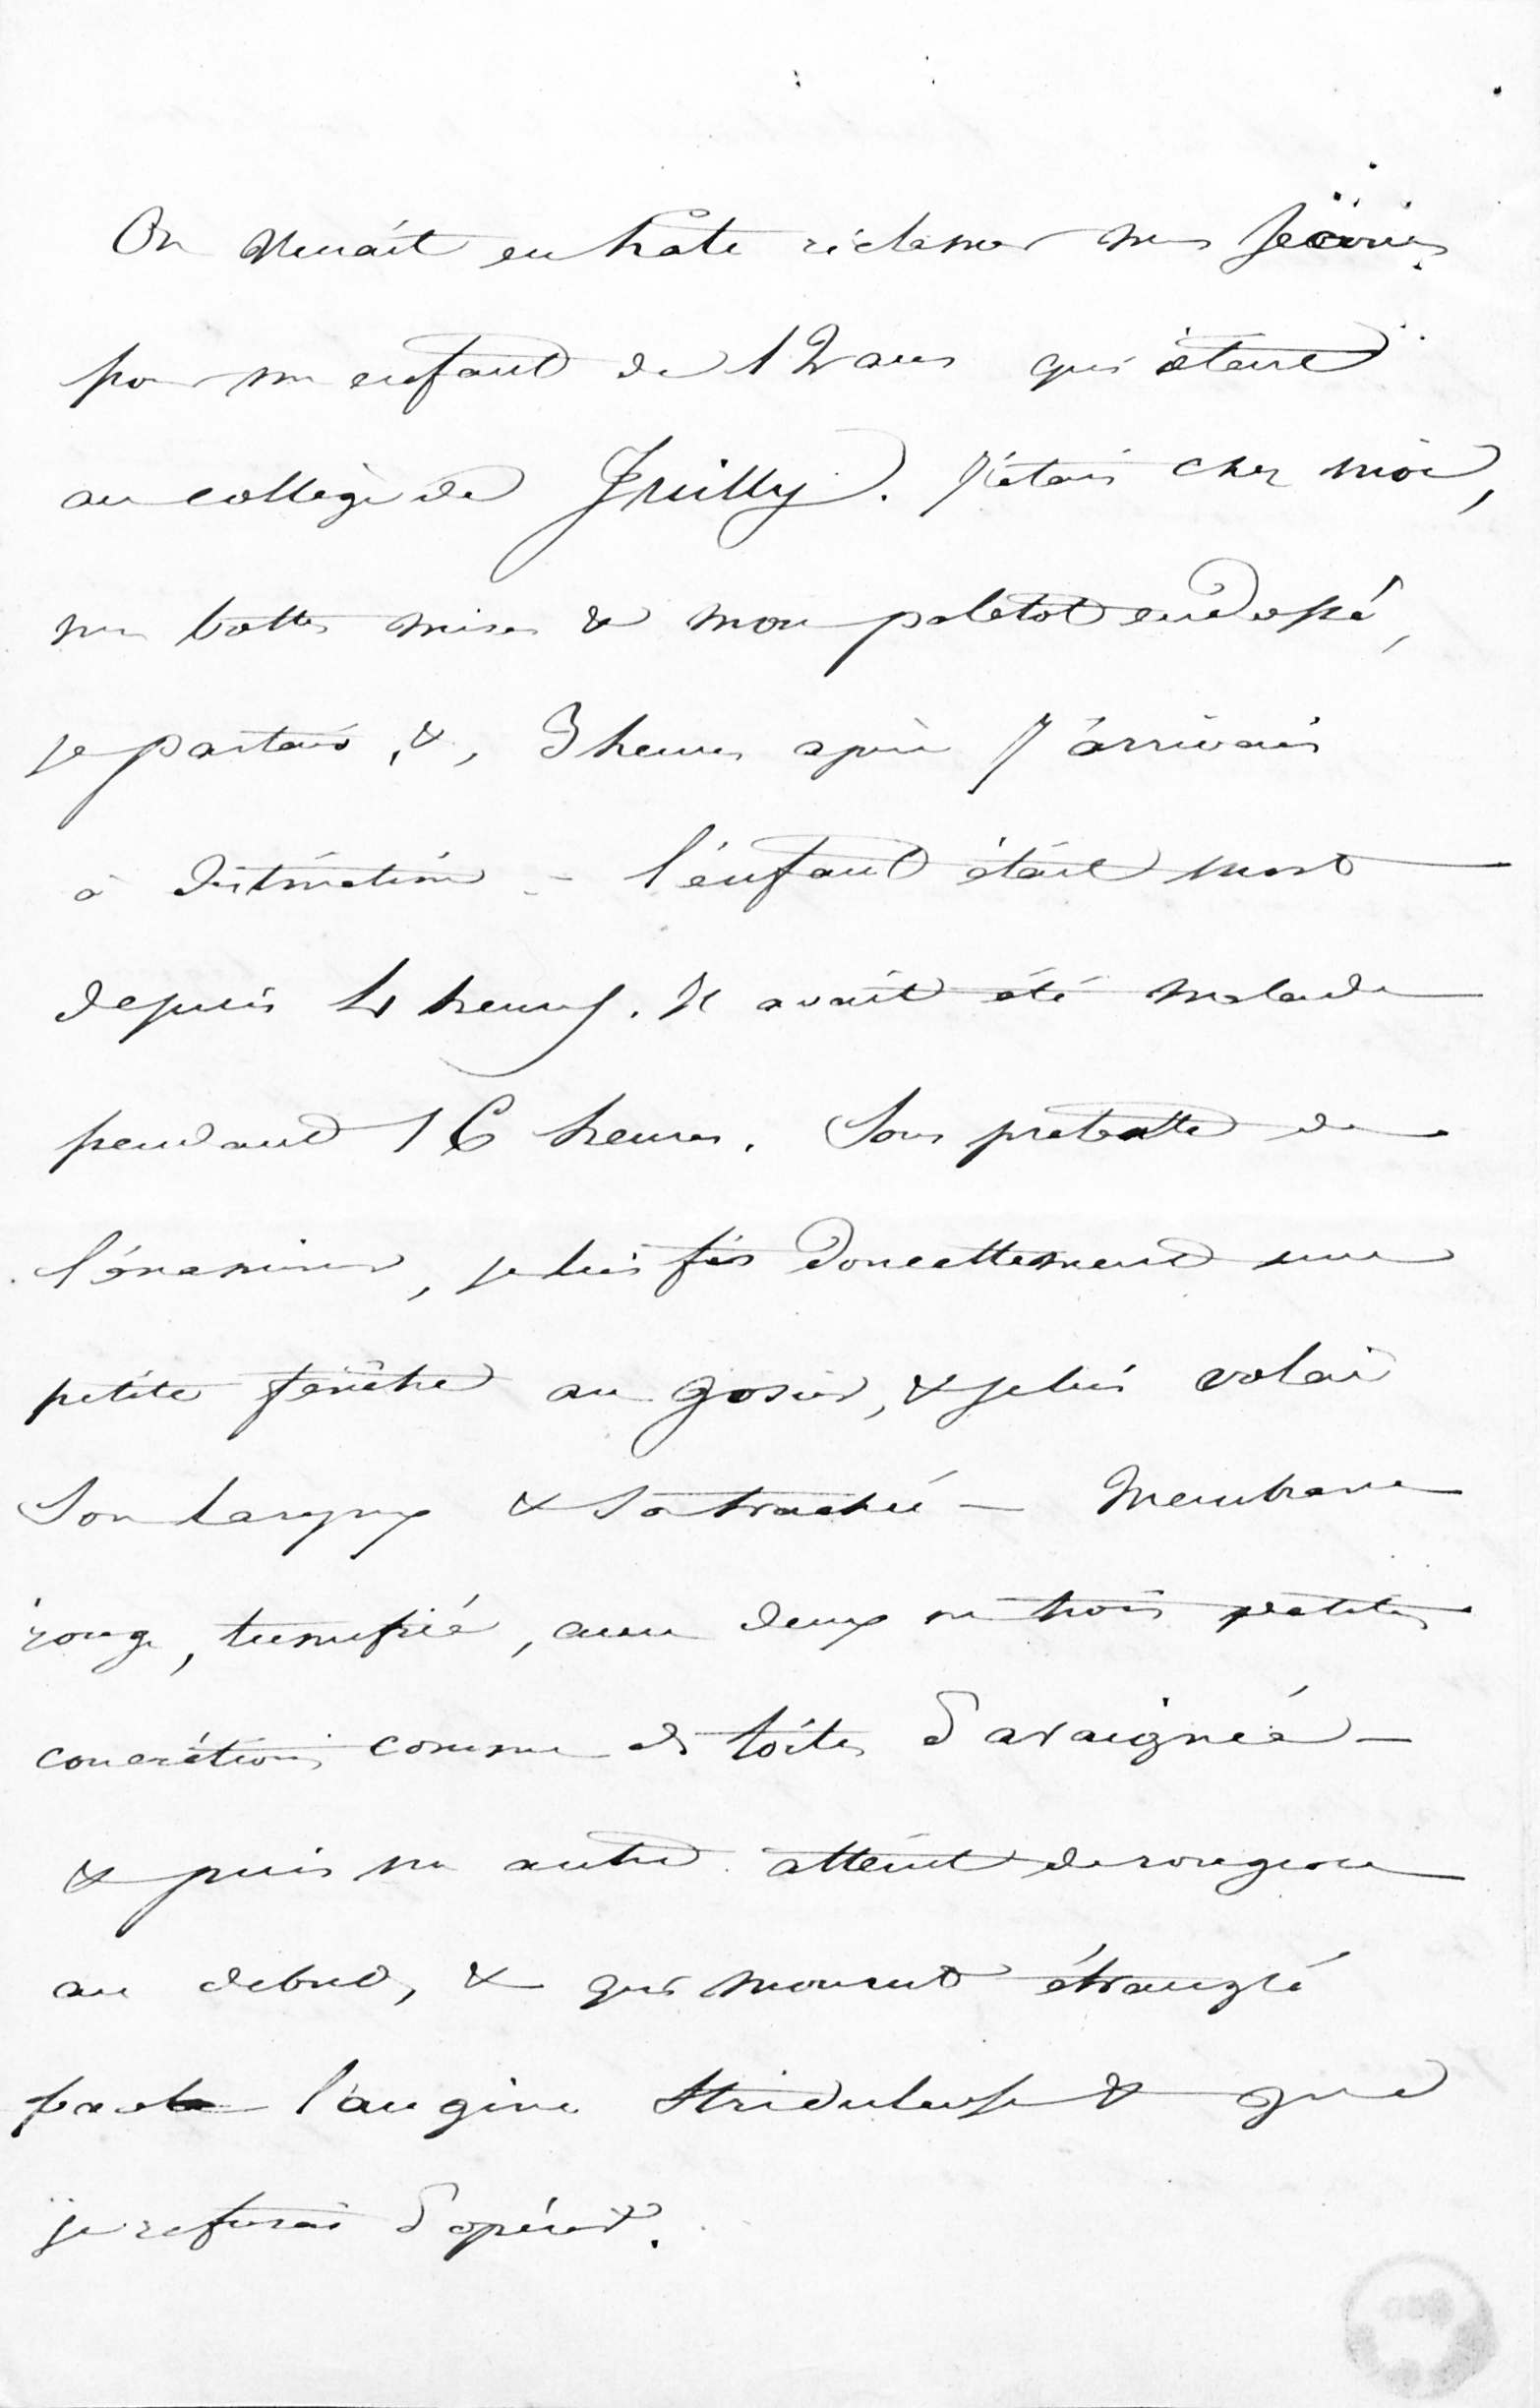 On venait en hate réclamer mes secours
pour un enfant de 12 ans qui était
au collège de Juilly. J'étais chez moi,
mes bottes mises & mon paletot endossé,
je partais, &, 3 heures après j'arrivais
à destination - l'enfant était mort
depuis 4 heures. Il avait été malade
pendant 16 heures. Sous pretexte de
l'examiner, je lui fis doucettement une
petite fenêtre au gosier, & je lui volai
son larynx & sa trachée - Membrane
rouge, tuméfiée, avec deux ou trois petites
concrétions comme des toiles d'araignée -
& puis un autre atteint de rougeole
au debut, & qui mourut étranglé
par l'angine striduleuse & que
je refusai d'opérer.